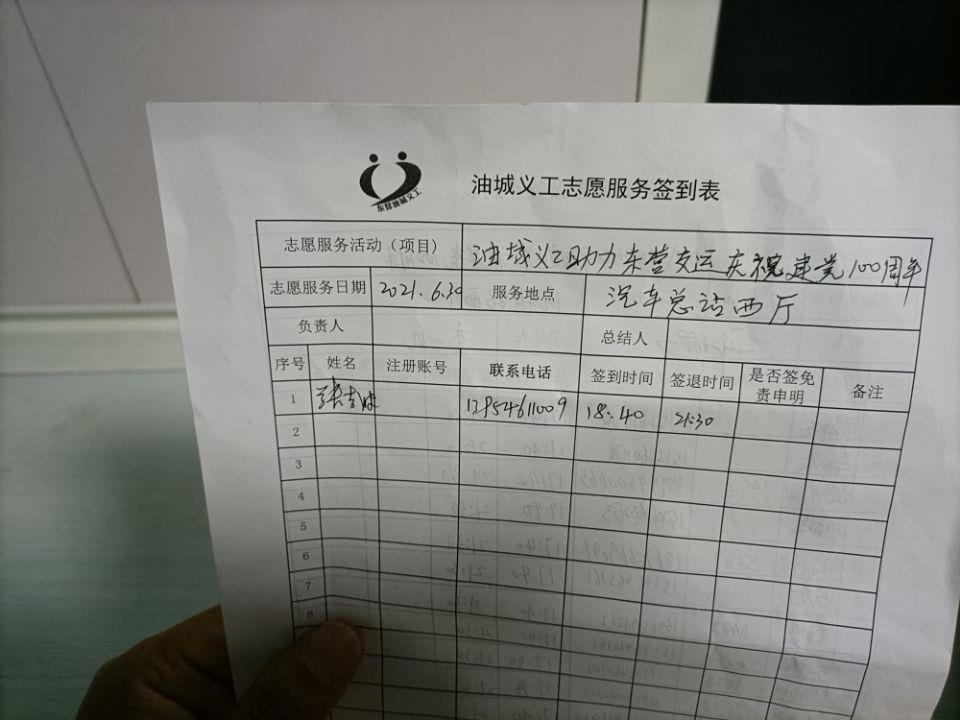 东营油城义工
油城义工志愿服务签到表
志愿服务活动（项目） 油城义工助力东营交运庆祝建党100周年
志愿服务日期 2021.6.30 服务地点 汽车总站西厅
负责人 总结人
序号 姓名 注册账号 联系电话 签到时间 签退时间 是否签免责申明 备注
1 张吉 13954611009 18:40 21:30
2
3
4
5
6
7
8